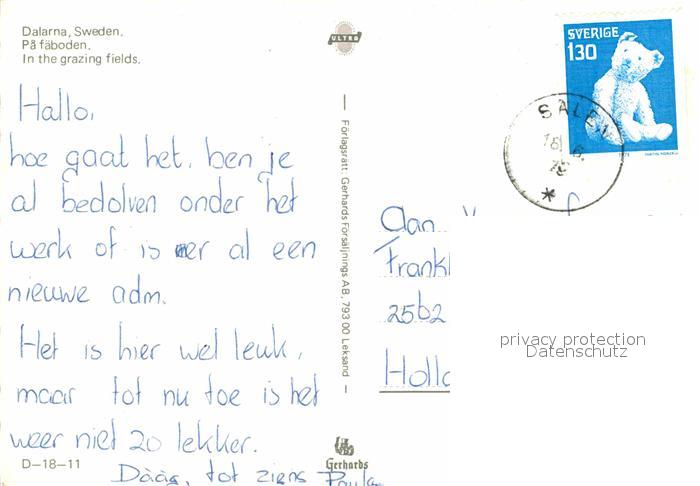 Dalarna, Sweden.
På fäboden.
In the grazing fields.
ULTRA
SVERIGE
130
SÄLEN
Hallo,
hoe gaat het. ben je
al bedolven onder het
werk of is er al een
nieuwe adm.
Het is hier wel leuk,
maar tot nu toe is het
weer niet zo lekker.
Dáág, tot ziens Paula
D-18-11
Förlagsrätt: Gerhards Försäljnings AB, 793 00 Leksand
Gerhards
Aan
Frankl
2562
Holla
privacy protection
Datenschutz